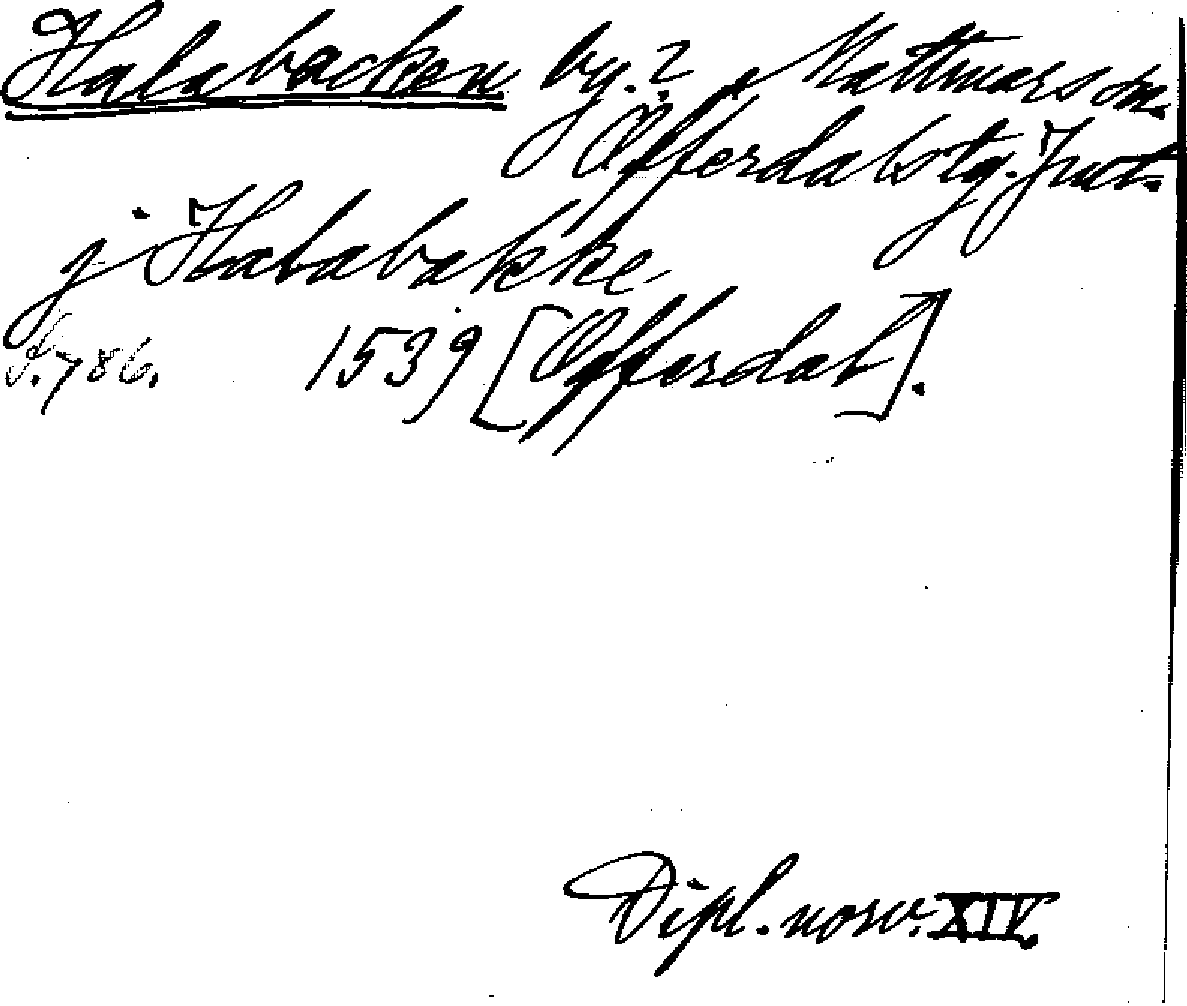 Halabacken by.? Mattmars sn.
Offerdals tg. Jmt.
j Halabakke
S. 786. 1539 [Offerdal].
Dipl. norv. XIV.